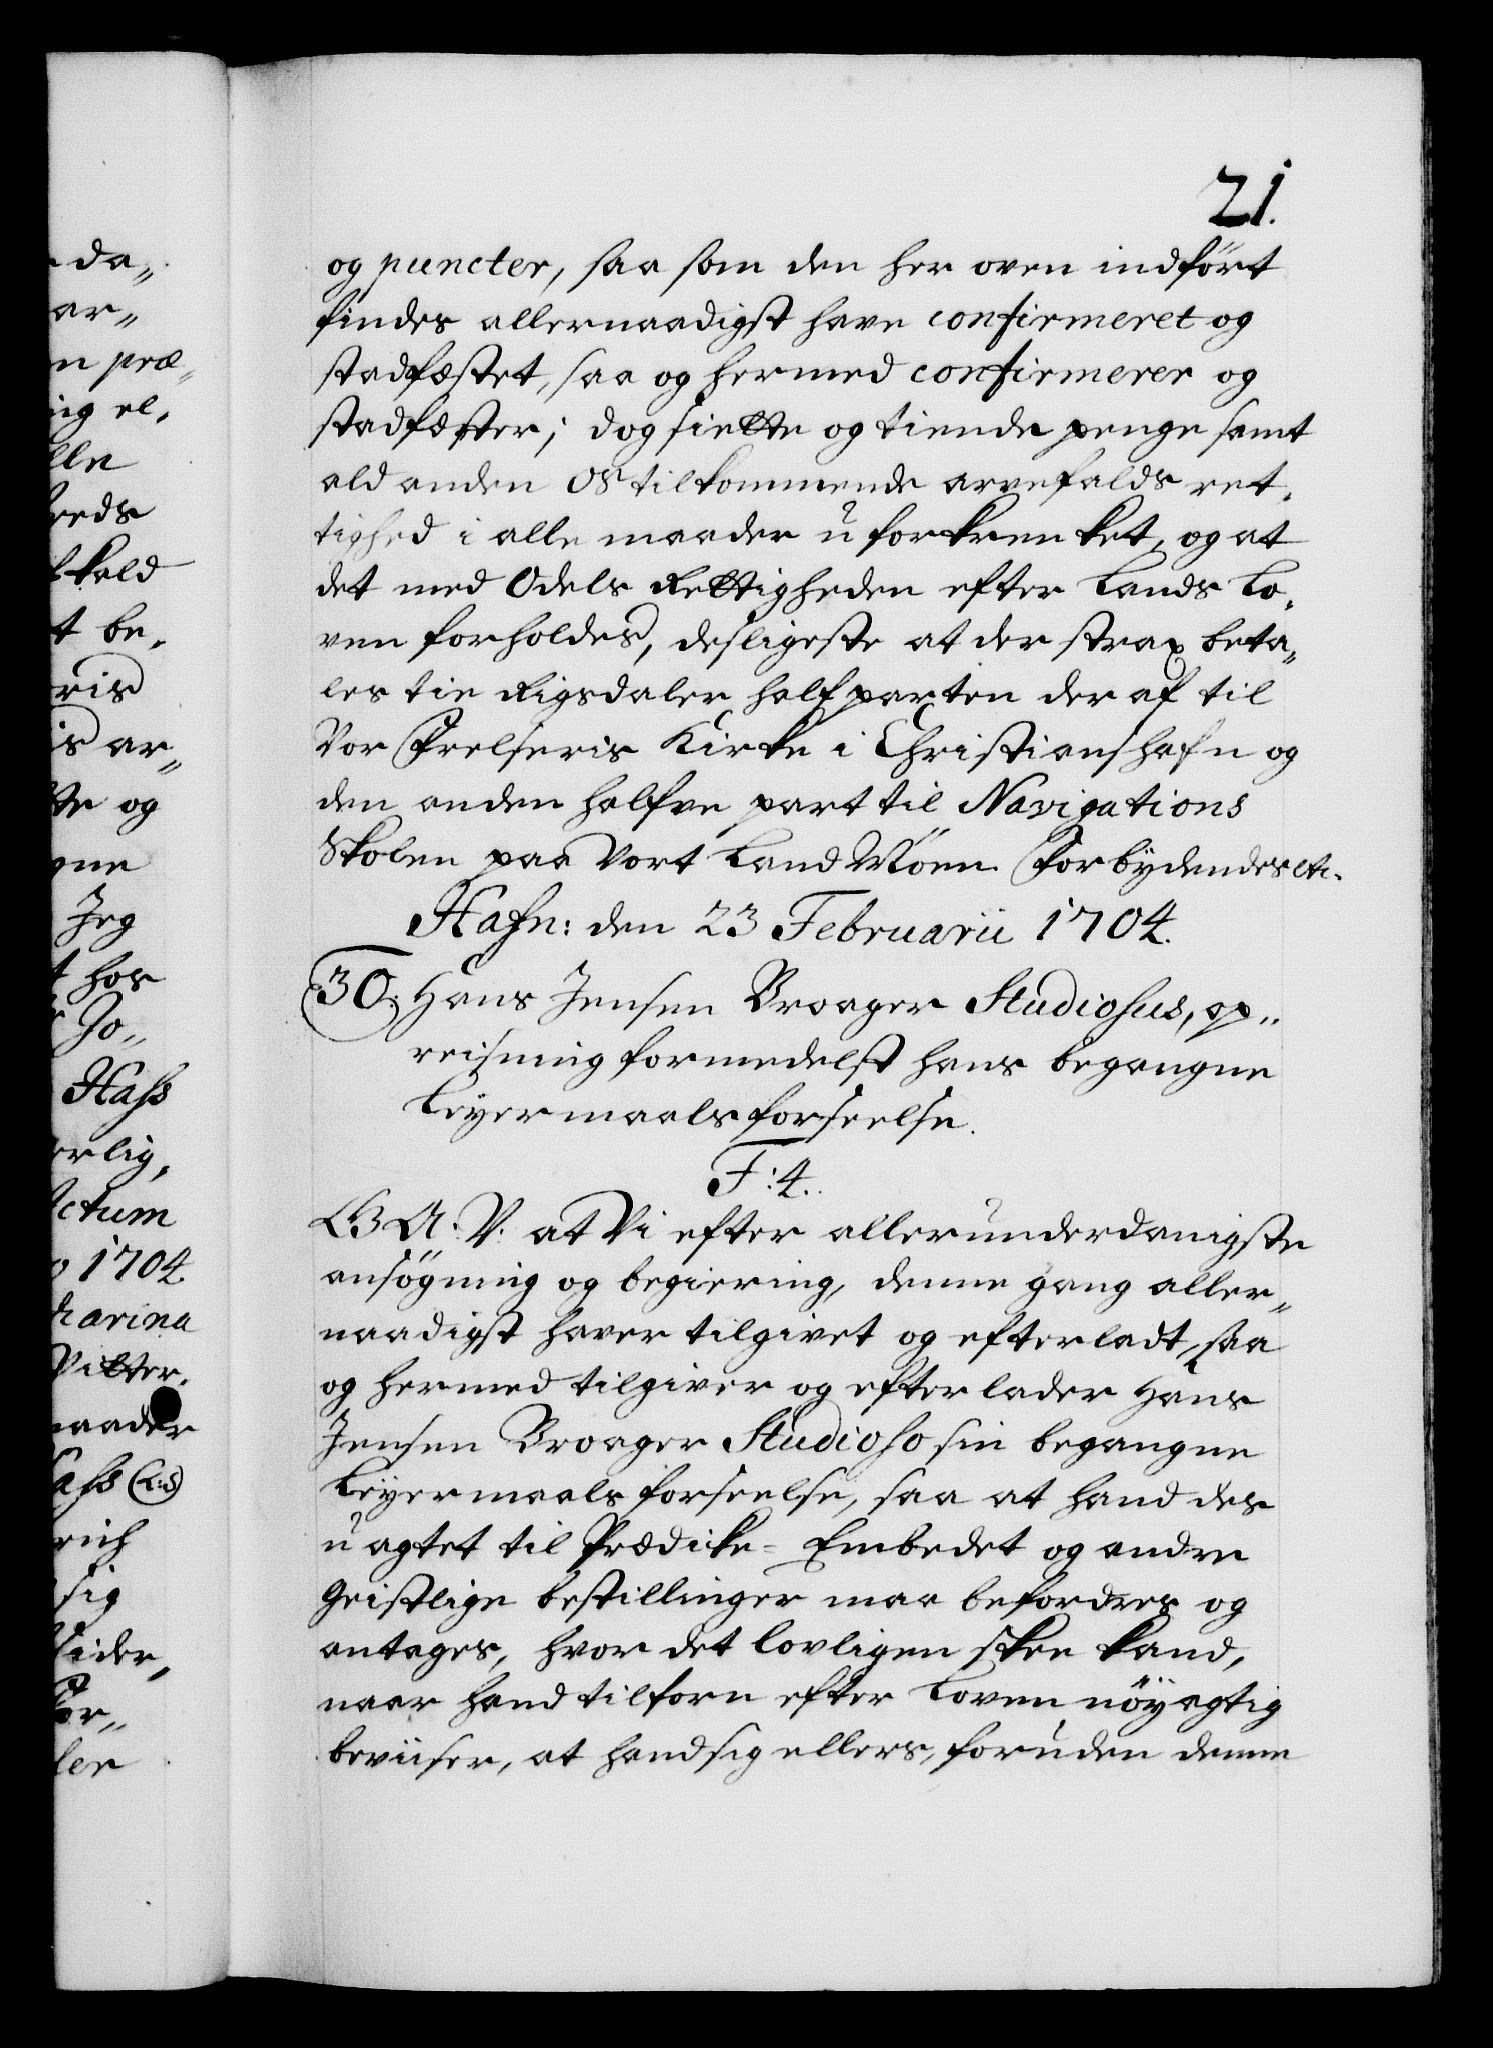 21.
og puncter, saa som den her oven indfört
findes allernaadigst have confirmeret og
stadfæstet, saa og hermed confirmerer og
stadfæster; dog siette og tiende penge samt
ald anden OS tilkommende arvefalds ret,
tighed i alle maader uforkrenket, og at
det med Odels Rettigheden efter Lands Lo,
ven forholdes, desligeste at der strax beta„
les tie Rigsdaler halfparten deraf til
Vor Frelseris Kirke i Christianshafn og
den anden halfve part til Navigations
Skolen paa Vort Land Möen. Forbydendes etc.
Hafn: den 23 Februarii 1704.
30. Hans Jensen Broager Studiosus, op„
reisning formedelst hans begangne
Leyermaals forseelse.
F: 4.
G A. V. at Vi efter allerunderdanigste
ansögning og begiering, denne gang aller„
naadigst haver tilgivet og efterladt, saa
og hermed tilgiver og efterlader Hans
Jensen Broager Studioso sin begangne
Leyermaals forseelse, saa at hand des
uagtet til Prædike-Embedet og andre
Geistlige bestillinger maa befordres og
antages, hvor det lovligen skee kand,
naar hand tilforn efter Loven nöyagtig
beviiser, at hand sig ellers, foruden denne
da„
ar„
n præ„
ig el,
lle
reds
kald
t be,
ris
is ar„
te og
gne
Jeg
t hos
Jo„
Hass
erlig,
Actum
o 1704.
harina
Vitter,
maader
ass (L:S)
rich
sig
ider,
or„
ler